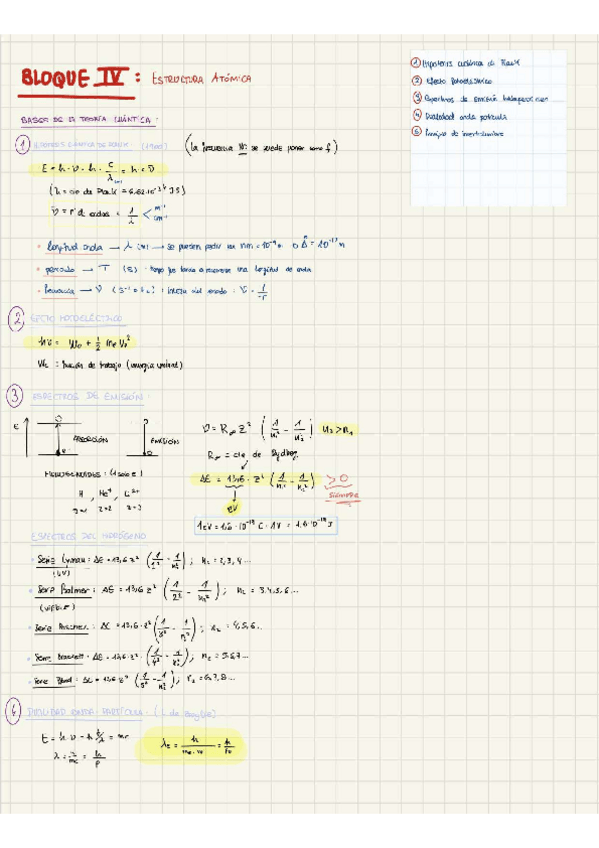 BLOQUE IV : ESTRUCTURA ATÓMICA
1 Hipótesis cuántica de Planck
2 Efecto fotoeléctrico
3 Espectros de emisión
4 Dualidad onda partícula
5 Principio de incertidumbre
BASES DE LA TEORÍA CUÁNTICA :
1 HIPÓTESIS CUÁNTICA DE PLANCK (1900) (La frecuencia se puede poner como f)
E = h · ν = h · c/λ
(h = cte de Planck = 6.62·10⁻³⁴ J·S)
ν̄ = nº de ondas = 1/λ < m⁻¹ cm⁻¹
• longitud onda → λ (m) → se pueden pedir en nm = 10⁻⁹ m o Å = 10⁻¹⁰ m
• periodo → T (s) : tiempo que tarda a recorrerse una longitud de onda
• frecuencia → ν (s⁻¹ = Hz) : inversa del periodo : ν = 1/T
2 EFECTO FOTOELÉCTRICO
hν = W₀ + 1/2 mₑ v₀²
W₀ : función de trabajo (energía umbral)
3 ESPECTROS DE EMISIÓN :
E ABSORCIÓN EMISIÓN
HIDROGENOIDES : (1 solo e⁻)
H , He⁺ , Li²⁺
z=1 z=2 z=3
ν̄ = R∞ Z² (1/n₁² - 1/n₂²) n₂ > n₁
R∞ = cte de Rydberg
ΔE = 13,6 · Z² (1/n₁² - 1/n₂²) > 0
SIEMPRE
eV
1eV = 1,6 · 10⁻¹⁹ C · 1V = 1,6·10⁻¹⁹ J
ESPECTROS DEL HIDRÓGENO
• Serie Lyman : ΔE = 13,6 z² (1/1² - 1/n₂²) ; n₂ = 2,3,4...
(UV)
• Serie Balmer : ΔE = 13,6 z² (1/2² - 1/n₂²) ; n₂ = 3,4,5,6...
(VISIBLE)
• Serie Paschen : ΔE = 13,6 · z² (1/3² - 1/n₂²) ; n₂ = 4,5,6..
• Serie Brackett : ΔE = 13,6 z² · (1/4² - 1/n₂²) ; n₂ = 5,6,7...
• Serie Pfund : ΔE = 13,6 z² (1/5² - 1/n₂²) ; n₂ = 6,7,8...
4 DUALIDAD ONDA-PARTÍCULA : (L. de Broglie)
E = h · ν = h c/λ = mc²
λ = h/mc = h/p
λₑ = h/mₑ · v = h/p